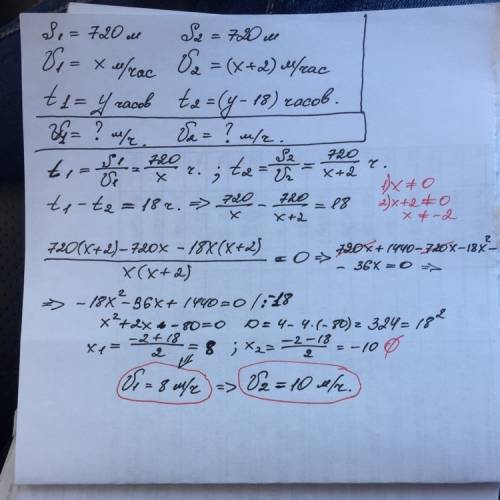 S₁ = 720 м    S₂ = 720 м
V₁ = x м/час    V₂ = (x+2) м/час
t₁ = y часов    t₂ = (y-18) часов.
V₁ = ? м/ч.    V₂ = ? м/ч.
t₁ = S₁/V₁ = 720/x ч. ; t₂ = S₂/V₂ = 720/(x+2) ч.
t₁ - t₂ = 18 ч. => 720/x - 720/(x+2) = 18
1) x ≠ 0
2) x+2 ≠ 0
x ≠ -2
(720(x+2) - 720x - 18x(x+2))/(x(x+2)) = 0 => 720x + 1440 - 720x - 18x² -
- 36x = 0 =>
=> -18x² - 36x + 1440 = 0 /:-18
x² + 2x - 80 = 0    D = 4 - 4·(-80) = 324 = 18²
x₁ = (-2+18)/2 = 8 ; x₂ = (-2-18)/2 = -10 ∅
V₁ = 8 м/ч => V₂ = 10 м/ч.